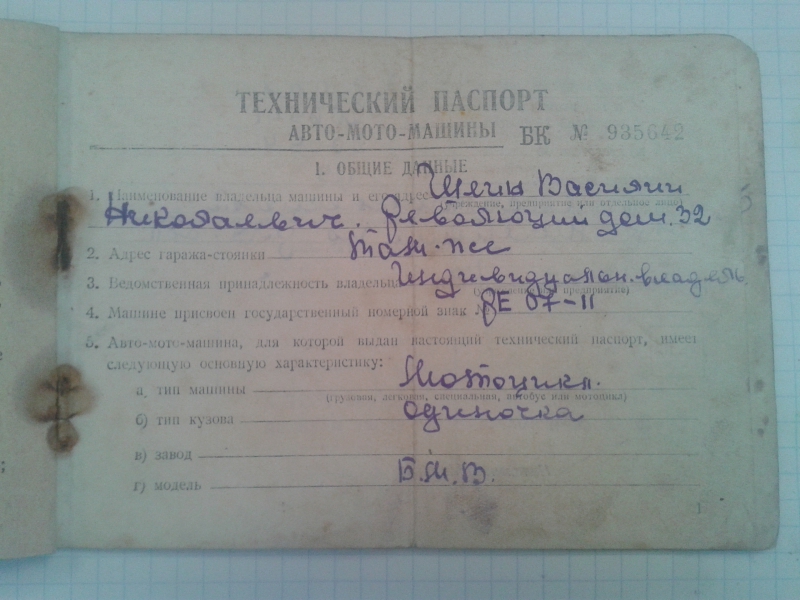 ТЕХНИЧЕСКИЙ ПАСПОРТ
АВТО-МОТО-МАШИНЫ БК № 935642
1. ОБЩИЕ ДАННЫЕ
1. Наименование владельца машины и его адрес Василий
(учреждение, предприятие или отдельное лицо)
Николаевич. дом. 32
2. Адрес гаража-стоянки там-же
3. Ведомственная принадлежность владельца
4. Машине присвоен государственный номерной знак № 07-11
5. Авто-мото-машина, для которой выдан настоящий технический паспорт, имеет
следующую основную характеристику:
а) тип машины Мотоцикл.
(грузовая, легковая, специальная, автобус или мотоцикл)
б) тип кузова одиночка
в) завод
г) модель Б.М.В.
1